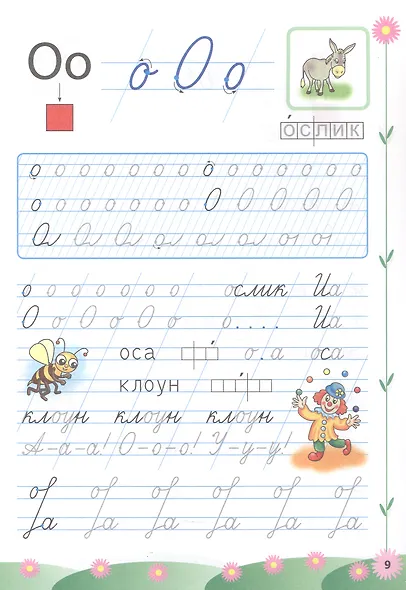 Оо о О о
ослик
о о о о о о о о о о о о о
о о о о о о о о О О О О О
О о о о о о о о о
о о о о о о о ослик Иа
О о О о О о о.... Иа
оса о.а оса
клоун
клоун клоун клоун
А-а-а! О-о-о! У-у-у!
9